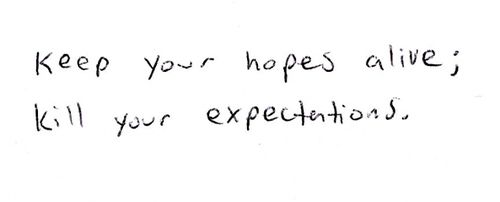 Keep your hopes alive;
Kill your expectations.